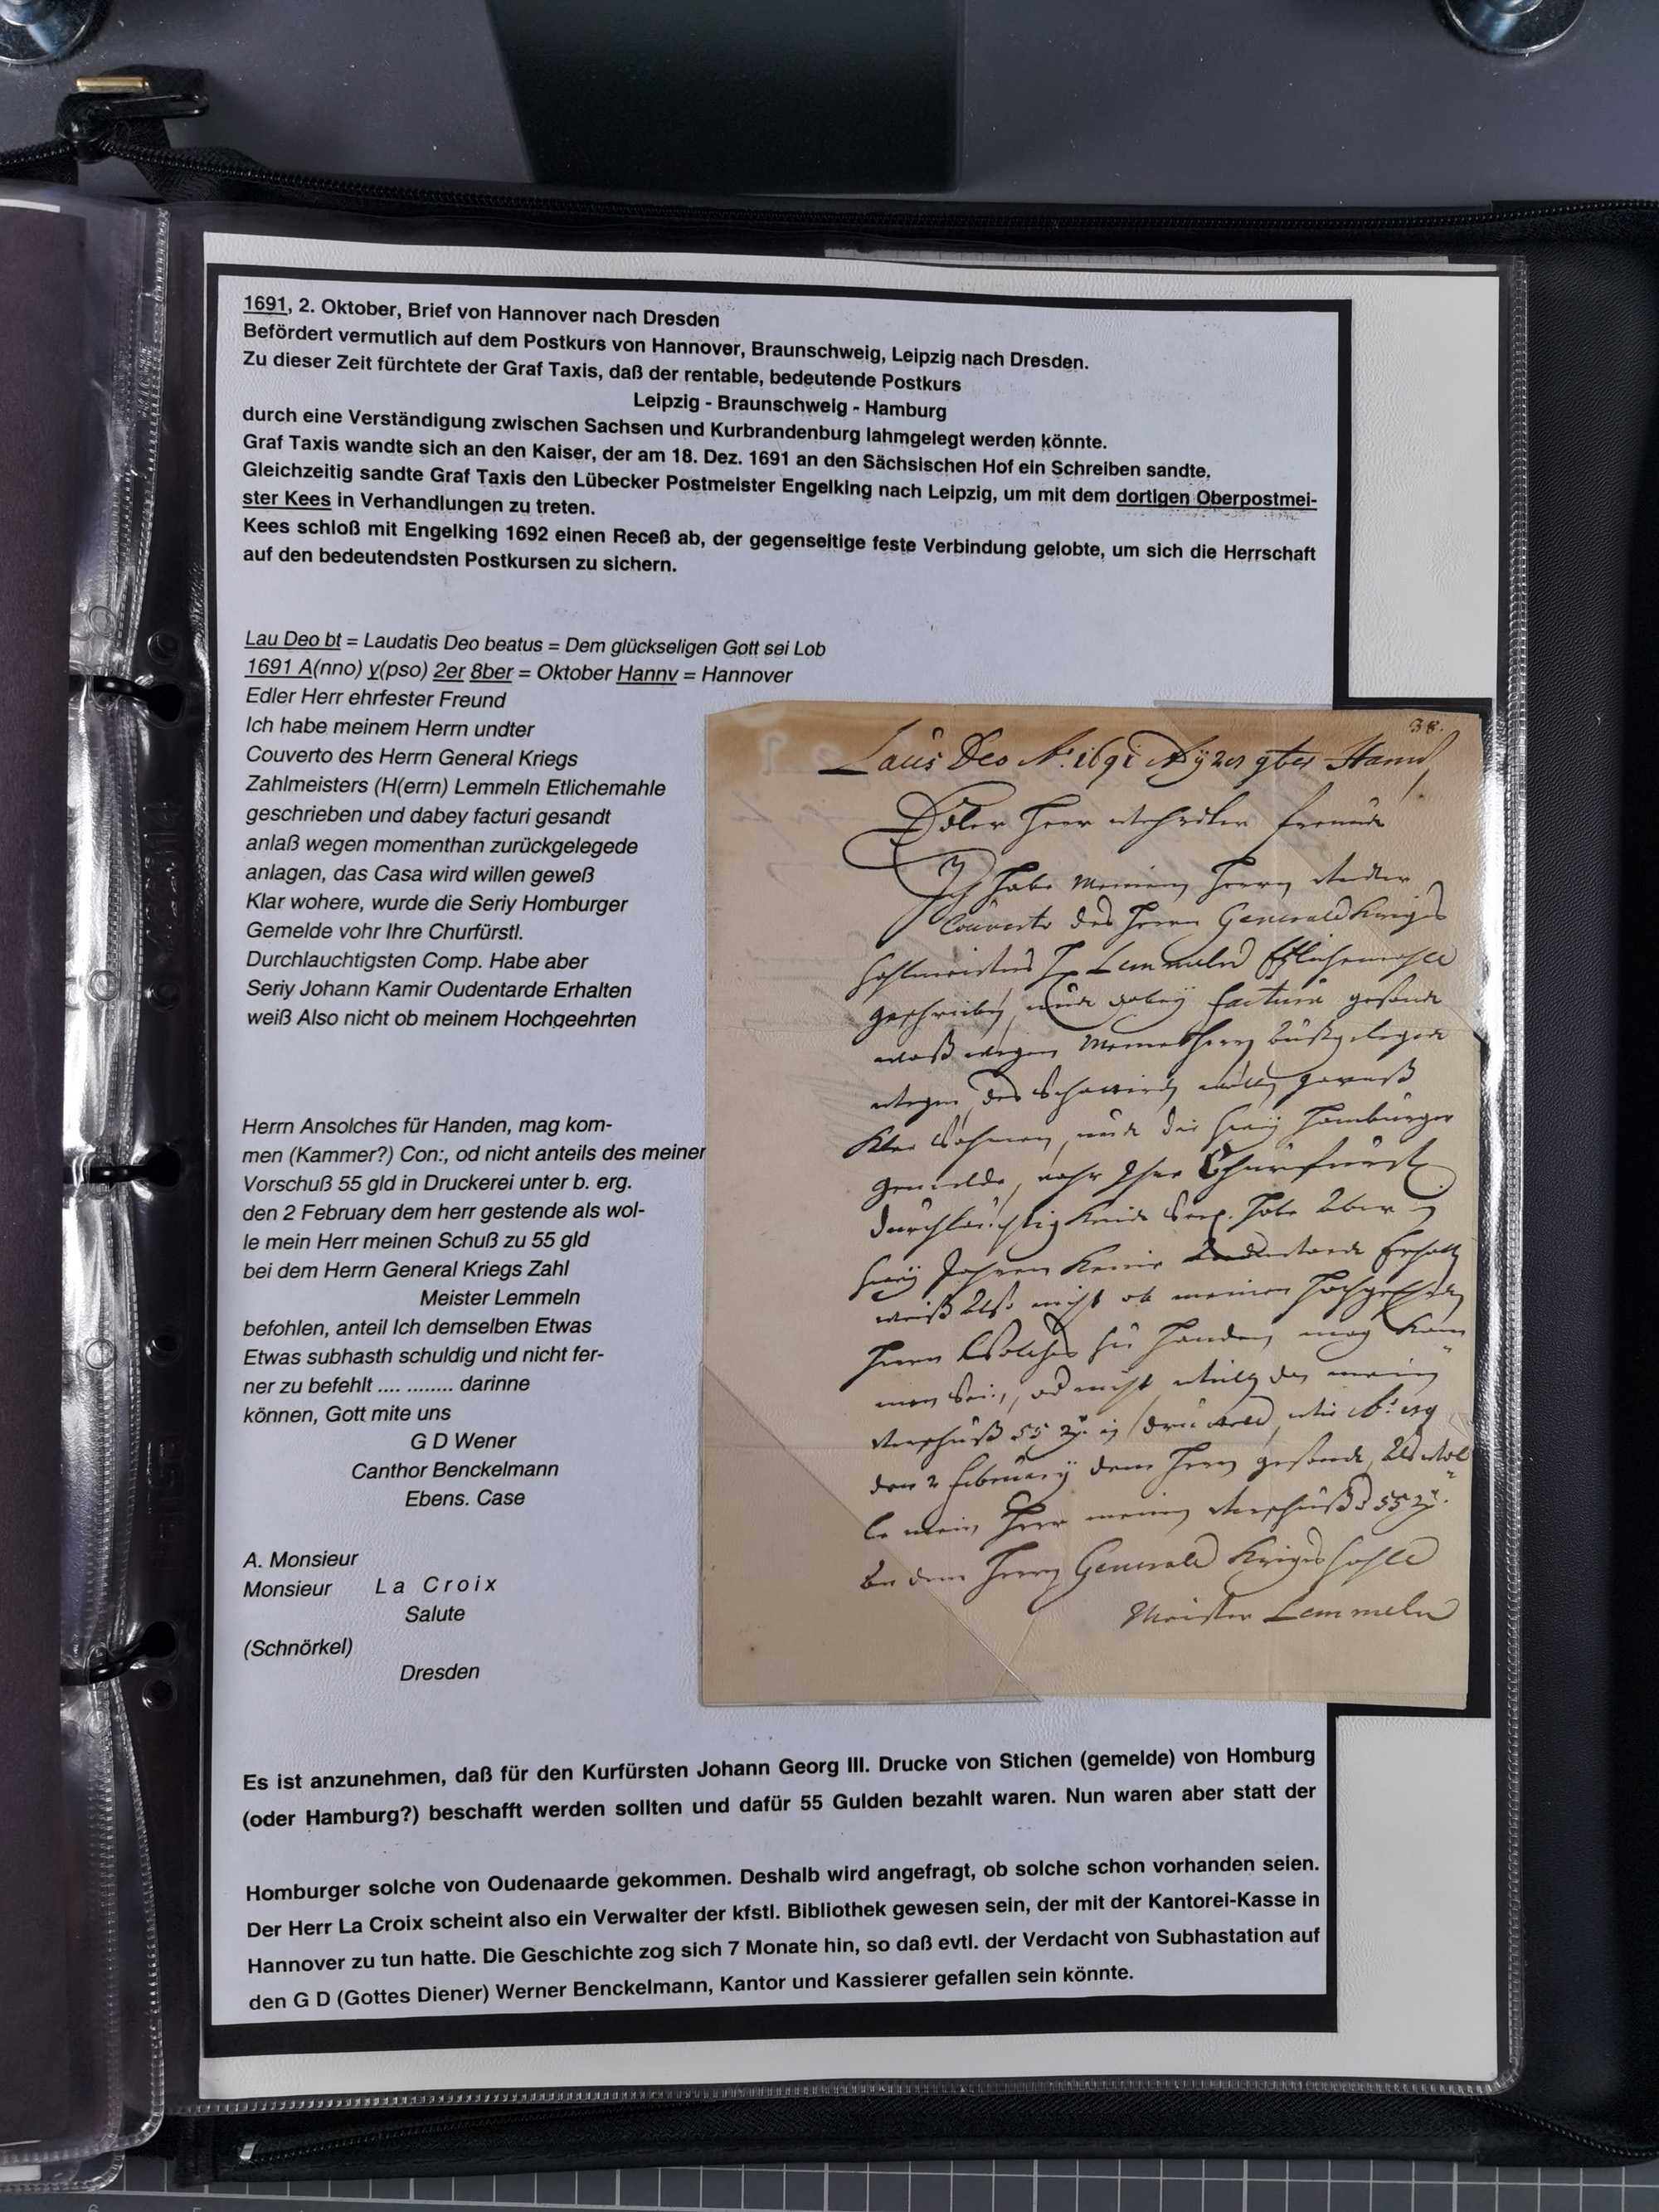 1691, 2. Oktober, Brief von Hannover nach Dresden
Befördert vermutlich auf dem Postkurs von Hannover, Braunschweig, Leipzig nach Dresden.
Zu dieser Zeit fürchtete der Graf Taxis, daß der rentable, bedeutende Postkurs
Leipzig - Braunschweig - Hamburg
durch eine Verständigung zwischen Sachsen und Kurbrandenburg lahmgelegt werden könnte.
Graf Taxis wandte sich an den Kaiser, der am 18. Dez. 1691 an den Sächsischen Hof ein Schreiben sandte.
Gleichzeitig sandte Graf Taxis den Lübecker Postmeister Engelking nach Leipzig, um mit dem dortigen Oberpostmei-
ster Kees in Verhandlungen zu treten.
Kees schloß mit Engelking 1692 einen Receß ab, der gegenseitige feste Verbindung gelobte, um sich die Herrschaft
auf den bedeutendsten Postkursen zu sichern.
Lau Deo bt = Laudatis Deo beatus = Dem glückseligen Gott sei Lob
1691 A(nno) y(pso) 2er 8ber = Oktober Hannv = Hannover
Edler Herr ehrfester Freund
Ich habe meinem Herrn undter
Couverto des Herrn General Kriegs
Zahlmeisters (H(errn) Lemmeln Etlichemahle
geschrieben und dabey facturi gesandt
anlaß wegen momenthan zurückgelegede
anlagen, das Casa wird willen geweß
Klar wohere, wurde die Seriy Homburger
Gemelde vohr Ihre Churfürstl.
Durchlauchtigsten Comp. Habe aber
Seriy Johann Kamir Oudentarde Erhalten
weiß Also nicht ob meinem Hochgeehrten
Herrn Ansolches für Handen, mag kom-
men (Kammer?) Con:, od nicht anteils des meiner
Vorschuß 55 gld in Druckerei unter b. erg.
den 2 February dem herr gestende als wol-
le mein Herr meinen Schuß zu 55 gld
bei dem Herrn General Kriegs Zahl
Meister Lemmeln
befohlen, anteil Ich demselben Etwas
Etwas subhasth schuldig und nicht fer-
ner zu befehlt .... ........ darinne
können, Gott mite uns
G D Wener
Canthor Benckelmann
Ebens. Case
A. Monsieur
Monsieur La Croix
Salute
(Schnörkel)
Dresden
38.
Laus Deo Aō 1691 Ady 2er 9ber Hannv
Edler Herr freund
Ich habe meinem Herrn
Couverto des Herrn Generall Kriges
Zahlmeisters H Lemmeln Etlichemahle
geschrieben, und dabey factura gesandt
waß wegen
gewuß
Hamburger
gemelde, vohr Ihre Churfürstl
durchlauchtigkeit habe Aber
Jahren keine Erhalten
weiß Also nicht ob meinen
Herrn Solches zu Handen mag kom
men sein, od nicht
55
den 2 February dem Herrn gesandt, Als wol
le mein Herr meinen 55
bei dem Herrn Generall Kriges Zahl
Meister Lemmeln
Es ist anzunehmen, daß für den Kurfürsten Johann Georg III. Drucke von Stichen (gemelde) von Homburg
(oder Hamburg?) beschafft werden sollten und dafür 55 Gulden bezahlt waren. Nun waren aber statt der
Homburger solche von Oudenaarde gekommen. Deshalb wird angefragt, ob solche schon vorhanden seien.
Der Herr La Croix scheint also ein Verwalter der kfstl. Bibliothek gewesen sein, der mit der Kantorei-Kasse in
Hannover zu tun hatte. Die Geschichte zog sich 7 Monate hin, so daß evtl. der Verdacht von Subhastation auf
den G D (Gottes Diener) Werner Benckelmann, Kantor und Kassierer gefallen sein könnte.